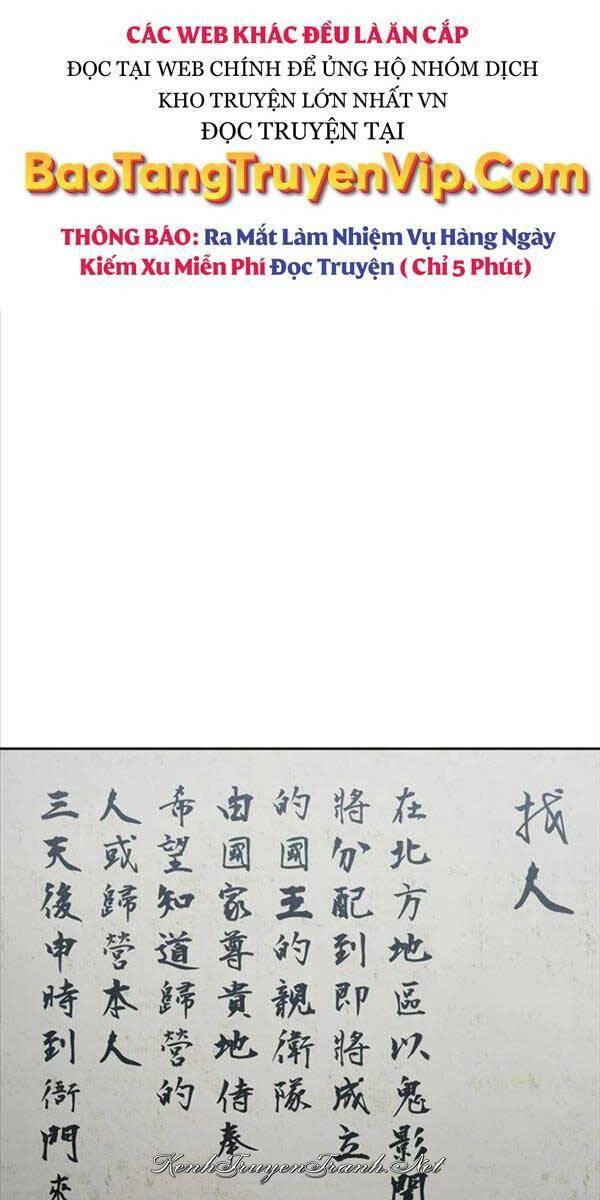 CÁC WEB KHÁC ĐỀU LÀ ĂN CẮP
ĐỌC TẠI WEB CHÍNH ĐỂ ỦNG HỘ NHÓM DỊCH
KHO TRUYỆN LỚN NHẤT VN
ĐỌC TRUYỆN TẠI
BaoTangTruyenVip.Com
THÔNG BÁO: Ra Mắt Làm Nhiệm Vụ Hàng Ngày
Kiếm Xu Miễn Phí Đọc Truyện ( Chỉ 5 Phút)
找人
在北方地區以鬼影聞
將分配到即將成立
的國王的親衛隊
由國家尊貴地侍奉
希望知道歸營的
人或歸營本人
三天後申時到衙門來
KenhTruyenTranh.Net